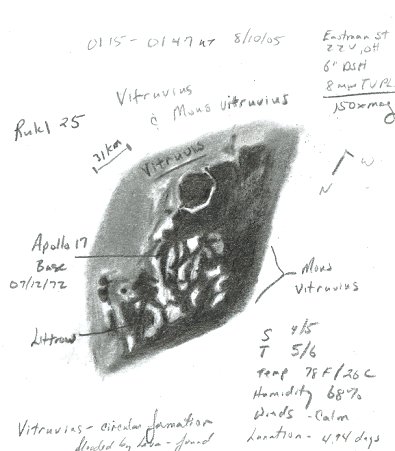 0115 - 0147 UT 8/10/05
Eastman St
ZZV, OH
6" DSH
8 mm TVPL
150x mag
Vitruvius
& Mons Vitruvius
Rukl 25
31 km
Vitruvius
W
N
Apollo 17
Base
07/12/72
Mons
Vitruvius
Littrow
S 4/5
T 5/6
Temp 78 F/26 C
Humidity 68%
Winds - Calm
Lunation - 4.94 days
Vitruvius - circular formation
flooded by lava - found